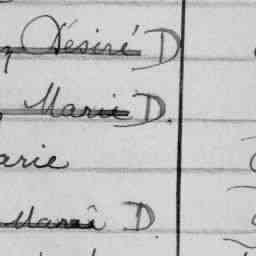 Désiré D
Marie D.
arie
Marie D.